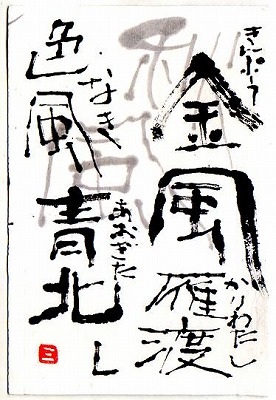 金風雁渡
かりわたし
色風青北し
なき
あおぎた
秋風
三